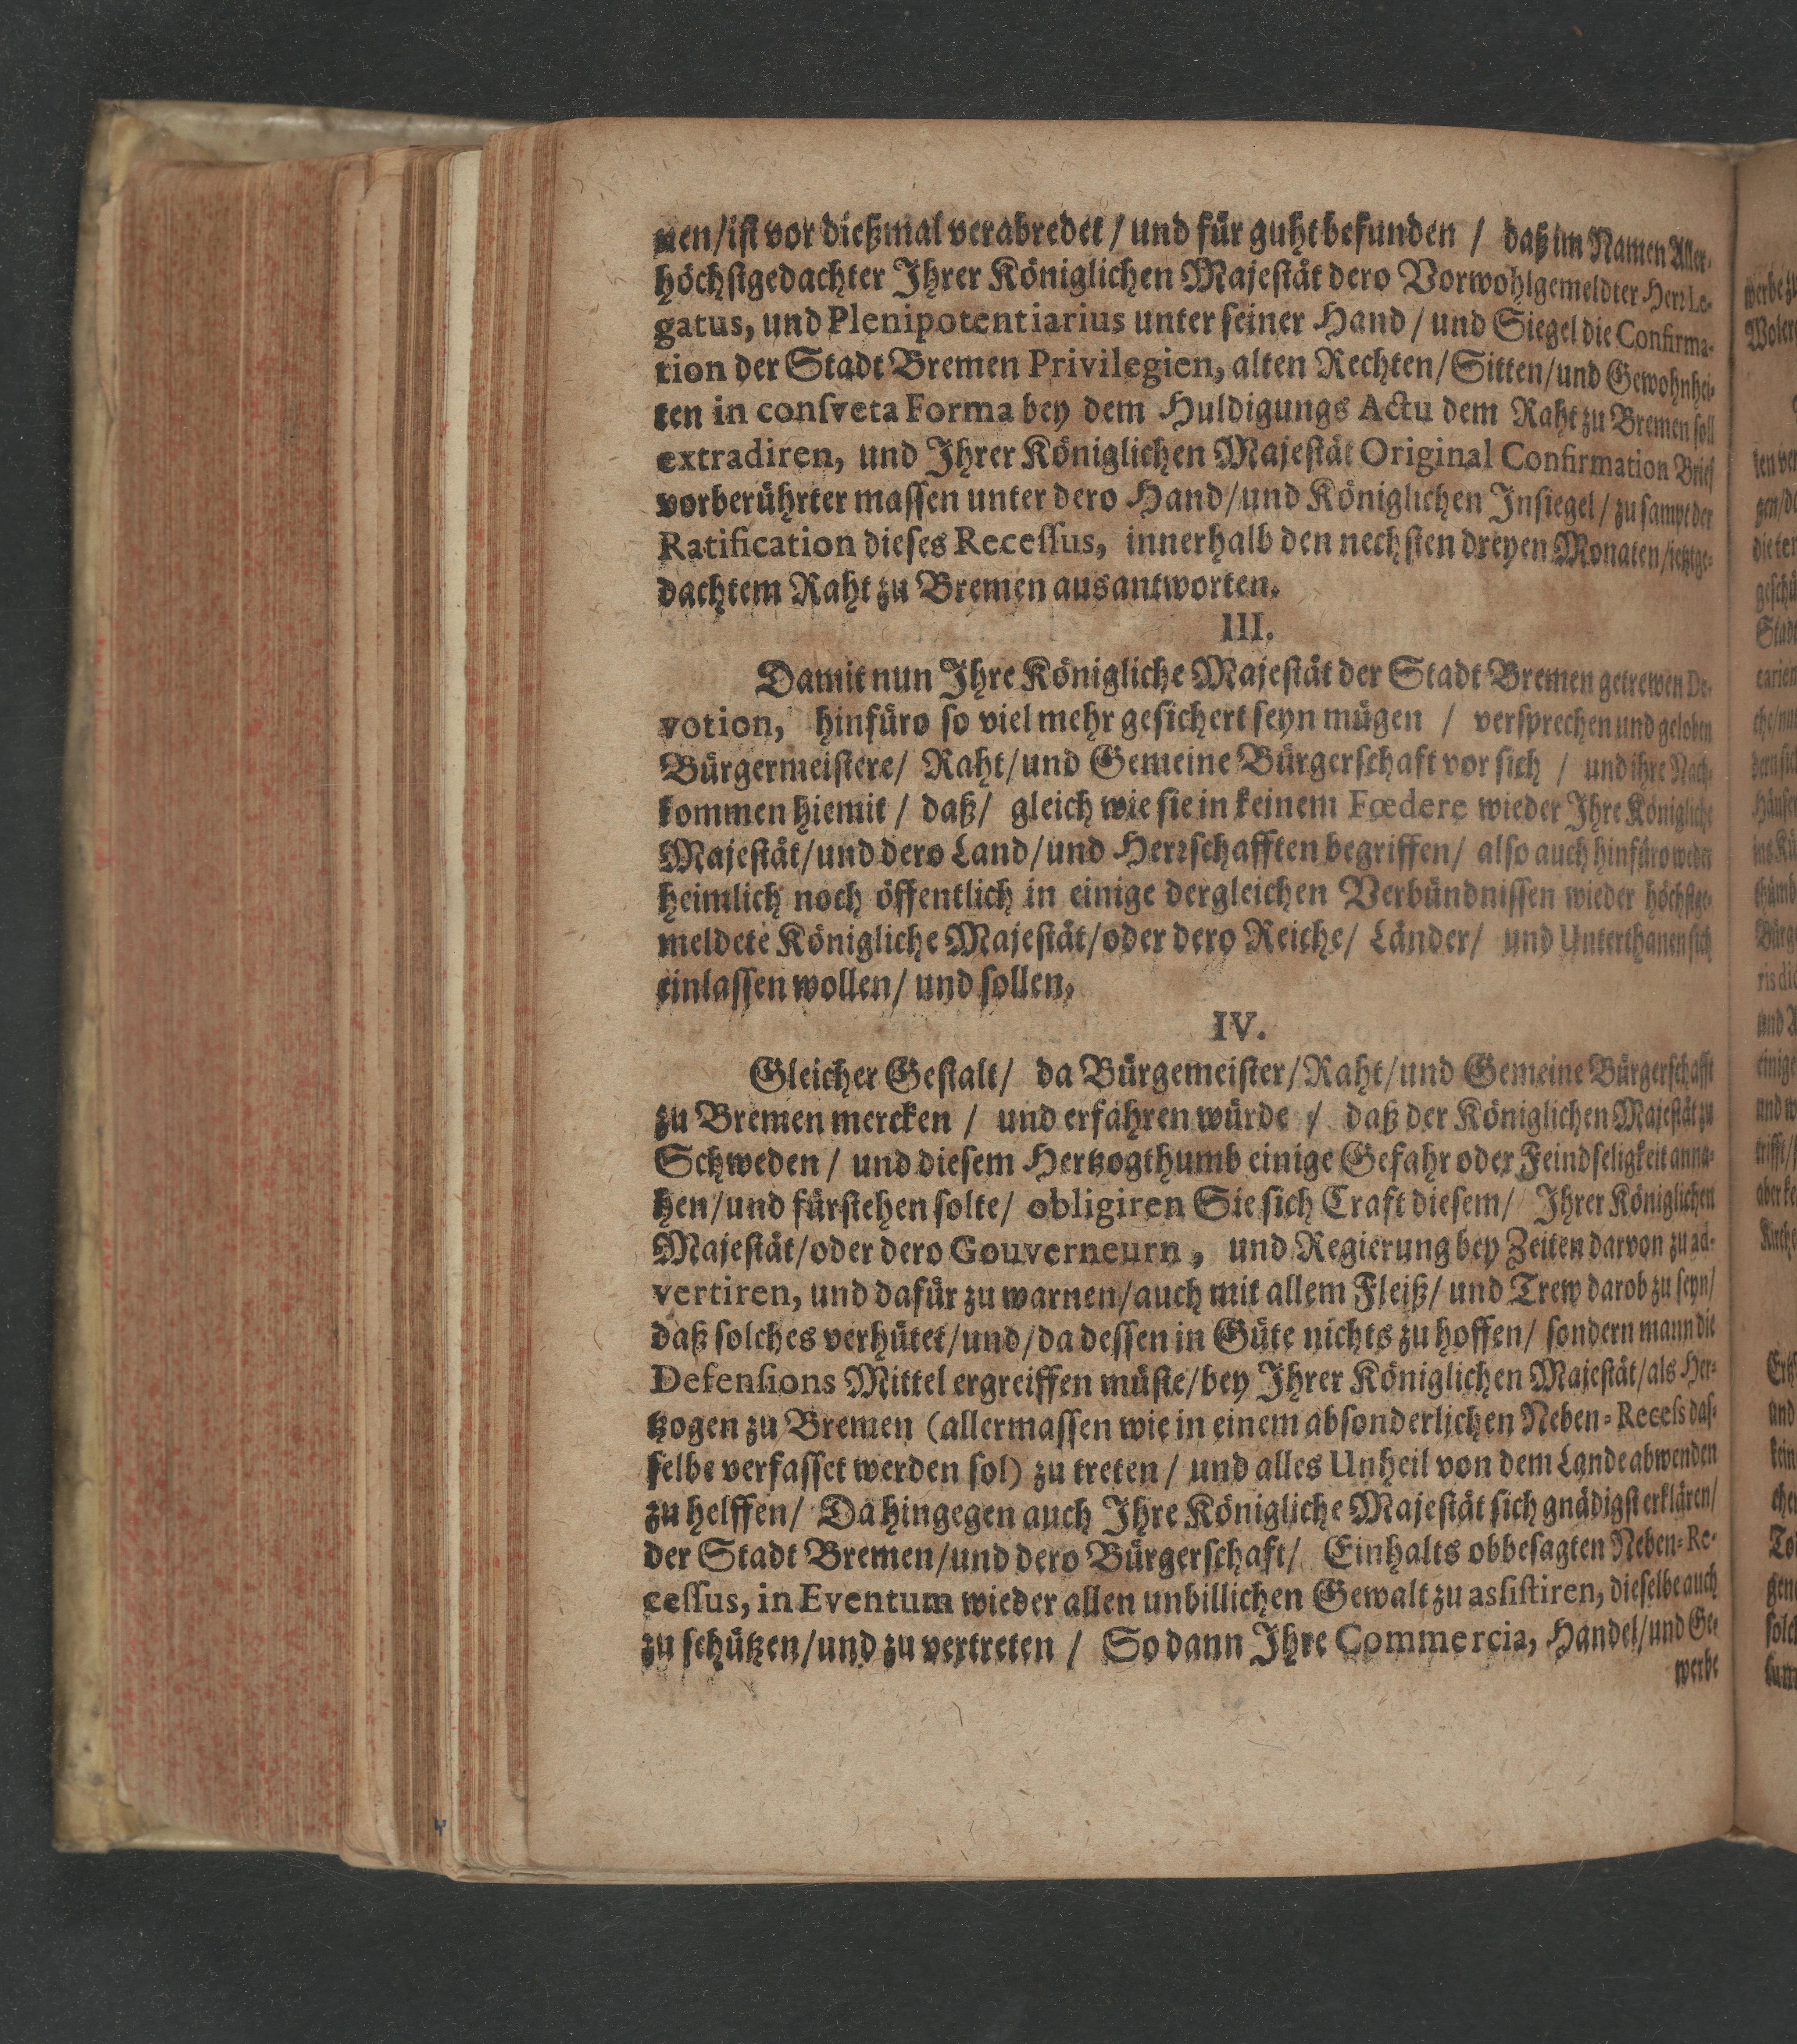 nen/ist vor dießmal verabredet/ und für guht befunden / daß im Namen Aller-
höchstgedachter Ihrer Königlichen Majestät dero Vorwohlgemeldter Herr Le-
gatus, und Plenipotentiarius unter seiner Hand/ und Siegel die Confirma-
tion der Stadt Bremen Privilegien, alten Rechten/Sitten/und Gewohnhei-
ten in consveta Forma bey dem Huldigungs Actu dem Raht zu Bremen soll
extradiren, und Ihrer Königlichen Majestät Original Confirmation Brief
vorberührter massen unter dero Hand/und Königlichen Insiegel/ zu sampt der
Ratification dieses Recessus, innerhalb den nechsten dreyen Monaten/jetztge-
dachtem Raht zu Bremen ausantworten.
III.
Damit nun Ihre Königliche Majestät der Stadt Bremen getrewen De-
votion, hinfüro so viel mehr gesichert seyn mügen / versprechen und geloben
Bürgermeistere/ Raht/und Gemeine Bürgerschaft vor sich / und ihre Nach-
kommen hiemit / daß/ gleich wie sie in keinem Fœdere wieder Ihre Königliche
Majestät/und dero Land/und Herrschafften begriffen/ also auch hinfüro weder
heimlich noch öffentlich in einige dergleichen Verbündnissen wieder höchstge-
meldete Königliche Majestät/oder dero Reiche/ Länder/ und Unterthanen sich
einlassen wollen/ und sollen.
IV.
Gleicher Gestalt/ da Bürgemeister/Raht/und Gemeine Bürgerschafft
zu Bremen mercken / und erfahren würde / daß der Königlichen Majestät zu
Schweden / und diesem Hertzogthumb einige Gefahr oder Feindseligkeit anna-
hen/und fürstehen solte/ obligiren Sie sich Craft diesem/ Ihrer Königlichen
Majestät/oder dero Gouverneurn, und Regierung bey Zeiten darvon zu ad-
vertiren, und dafür zu warnen/auch mit allem Fleiß/ und Trew darob zu seyn/
daß solches verhütet/und/da dessen in Güte nichts zu hoffen/ sondern mann die
Defensions Mittel ergreiffen müste/bey Ihrer Königlichen Majestät/als Her-
tzogen zu Bremen (allermassen wie in einem absonderlichen Neben-Recess das-
selbe verfasset werden sol) zu treten / und alles Unheil von dem Lande abwenden
zu helffen/ Da hingegen auch Ihre Königliche Majestät sich gnädigst erklären/
der Stadt Bremen/und dero Bürgerschaft/ Einhalts obbesagten Neben-Re-
cessus, in Eventum wieder allen unbillichen Gewalt zu assistiren, dieselbe auch
zu schützen/und zu vertreten / So dann Ihre Commercia, Handel/und Ge-
werbe